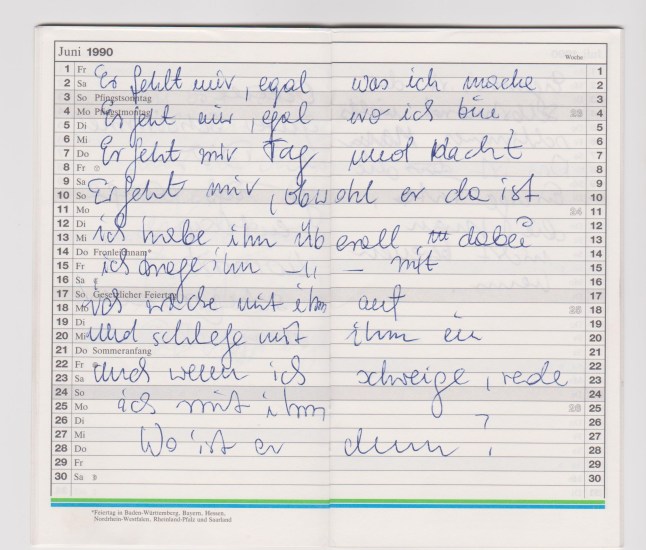 Juni 1990
Woche
1 Fr Er fehlt mir, egal was ich mache 1
2 Sa 2
3 So Pfingstsonntag 3
4 Mo Pfingstmontag Er feht mir, egal wo ich bin 4
5 Di 5
6 Mi 6
7 Do Er feht mir Tag und Nacht 7
8 Fr 8
9 Sa 9
10 So Er feht mir, obwohl er da ist 10
11 Mo 24 11
12 Di 12
13 Mi ich habe ihn überall dabei 13
14 Do Fronleichnam* 14
15 Fr ich trage ihn —"— mit 15
16 Sa 16
17 So Gesetzlicher Feiertag 17
18 Mo ich wache mit ihm auf 25 18
19 Di 19
20 Mi und schlefe mit ihm ein 20
21 Do Sommeranfang 21
22 Fr 22
23 Sa und wenn ich schweige, rede 23
24 So 24
25 Mo ich mit ihm 26 25
26 Di 26
27 Mi 27
28 Do Wo ist er denn? 28
29 Fr 29
30 Sa 30
*Feiertag in Baden-Württemberg, Bayern, Hessen,
Nordrhein-Westfalen, Rheinland-Pfalz und Saarland